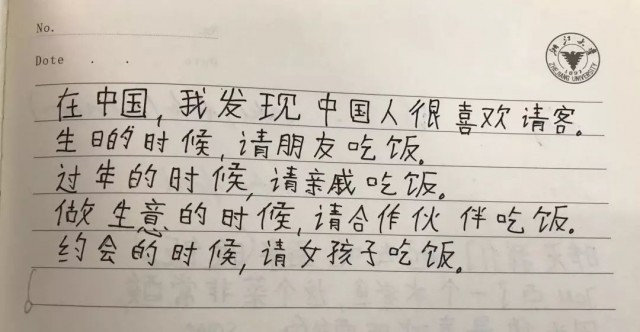 No.
Dote . .
浙江大学
1897
ZHEJIANG UNIVERSITY
在中国,我发现中国人很喜欢请客。
生日的时候,请朋友吃饭。
过年的时候,请亲戚吃饭。
做生意的时候,请合作伙伴吃饭。
约会的时候,请女孩子吃饭。